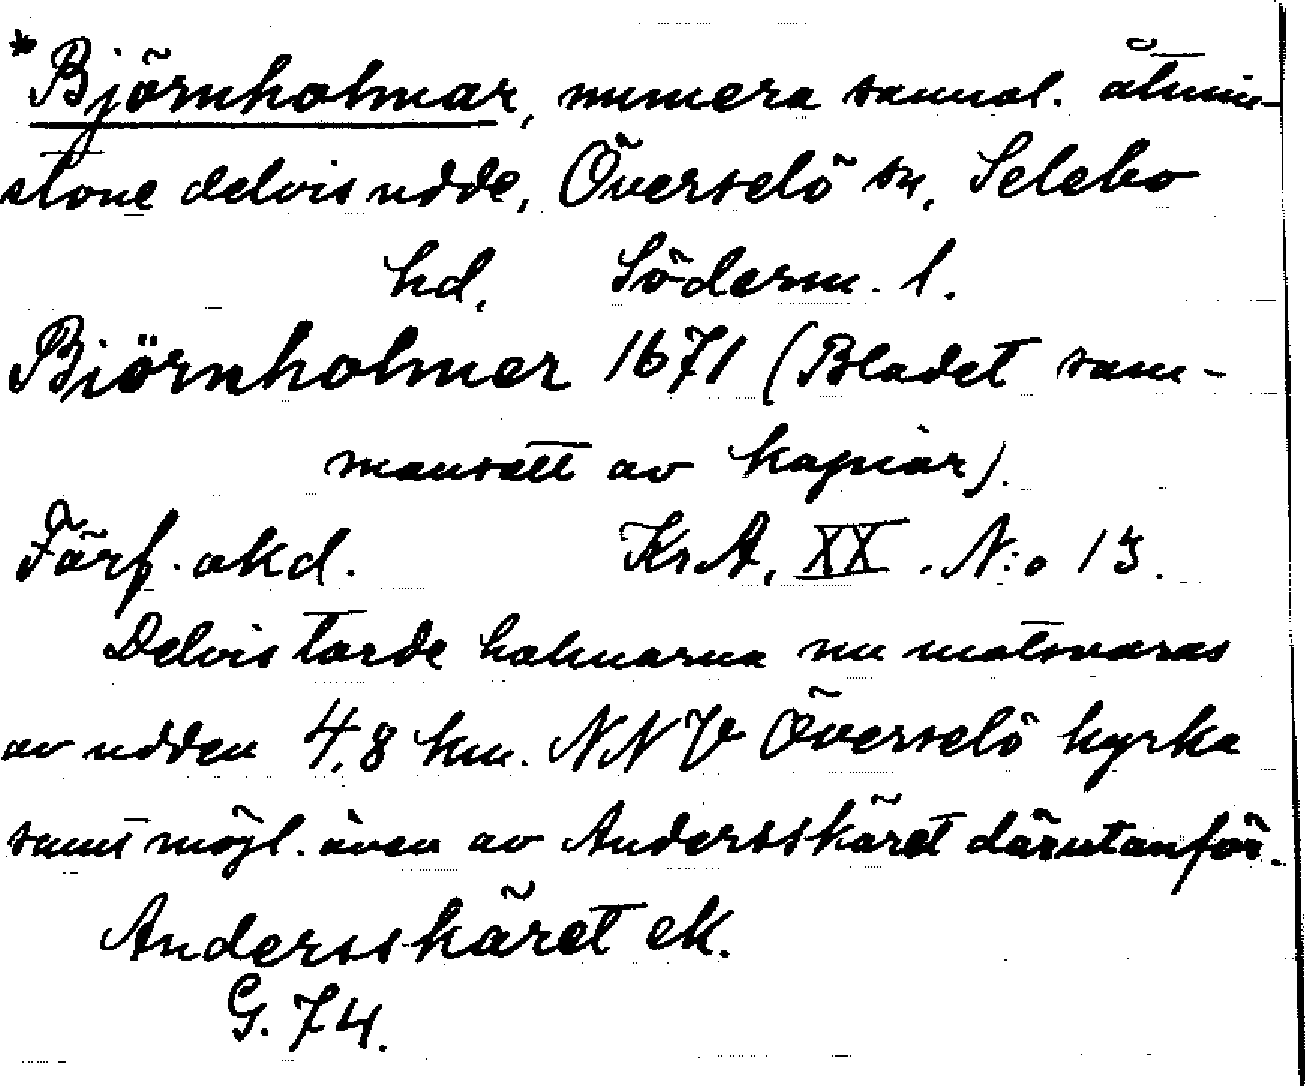 *Björnholmar, numera sannol. åtmin-
stone delvis udde, Överselö sn, Selebo
hd, Söderm. l.
Biörnholmer 1671 (Bladet sam-
mansatt av kopior).
Förf. akd. KrA, XX. N:o 13.
Delvis torde holmarna nu motsvaras
av udden 4,8 km. NNV Överselö kyrka
samt möjl. även av Andersskäret därutanför.
Andersskäret ek.
G. 74.